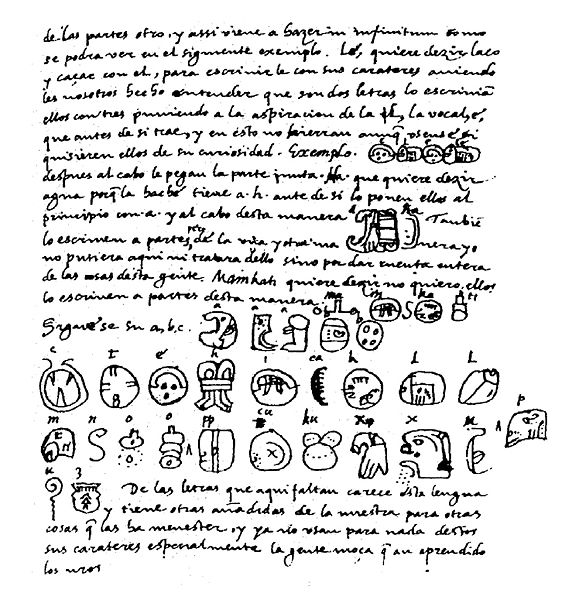 de las partes otro, y assi viene a hazer in infinitum como
se podra ver en el siguiente exemplo. Lé, quiere dezir laço
y caçar con el, para escrivirle con sus carateres aviendo
les nosotros hecho entender que son dos letras lo escrivian
ellos con tres puniendo a la aspiracion de la l, la vocal, é,
que antes de si trae, y en esto no hierran aunq̃ usense, si
quisieren ellos de su curiosidad. Exemplo.
despues al cabo le pegan la parte junta. Ha. que quiere dezir
agua porq̃ la haché tiene a.h. ante de si lo ponen ellos al
principio con a. y al cabo desta manera a ha Tambiē
lo escriven a partes, de la una y otra ma nera yo
no pusiera aqui ni tratara dello sino por dar cuenta entera
de las cosas desta gente. Mainkati quiere dezir no quiero, ellos
lo escriven a partes desta manera. ma in ka ti
Siguese su a, b, c. a a a b b
c t é h i ca k l l
m n o o pp cu ku x x u p
u z De las letras que aqui faltan carece esta lengua
y tiene otras añadidas de la nuestra para otras
cosas q̃ las ha menester, y ya no usan para nada destos
sus carateres especialmente la gente moça q̃ an aprendido
los nros